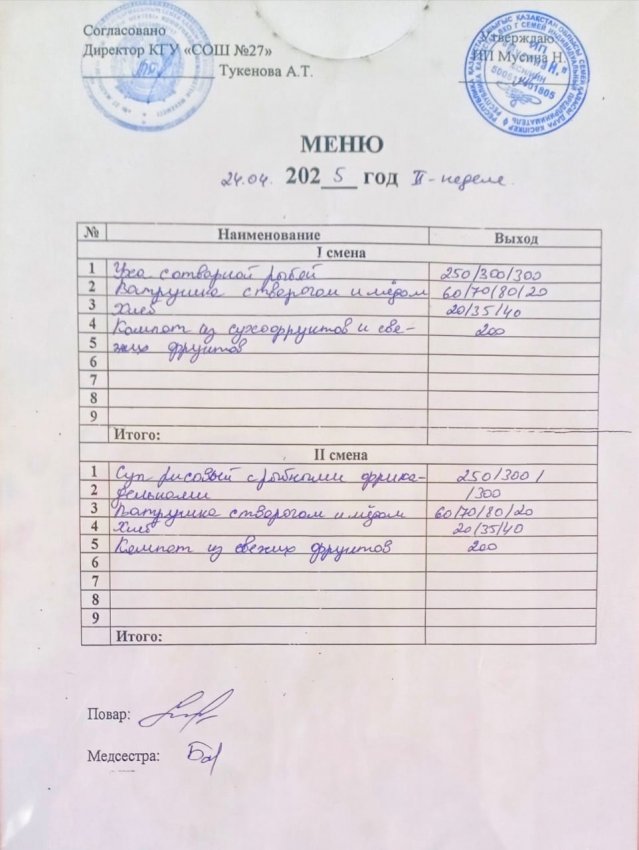 Согласовано
Директор КГУ «СОШ №27»
Тукенова А.Т.
Утверждаю
ИП Мусина Н.
МЕНЮ
24.04. 2025 год II - неделе.
№ Наименование Выход
I смена
1 Уха с отварной рыбой 250/300/300
2 Ватрушка с творогом и мёдом 60/70/80/20
3 Хлеб 20/35/40
4 Компот из сухофруктов и све- 200
5 жих фруктов
6
7
8
9
Итого:
II смена
1 Суп рисовый с рыбными фрика- 250/300/
2 дельками /300
3 Ватрушка с творогом и мёдом 60/70/80/20
4 Хлеб 20/35/40
5 Компот из свежих фруктов 200
6
7
8
9
Итого:
Повар:
Медсестра: